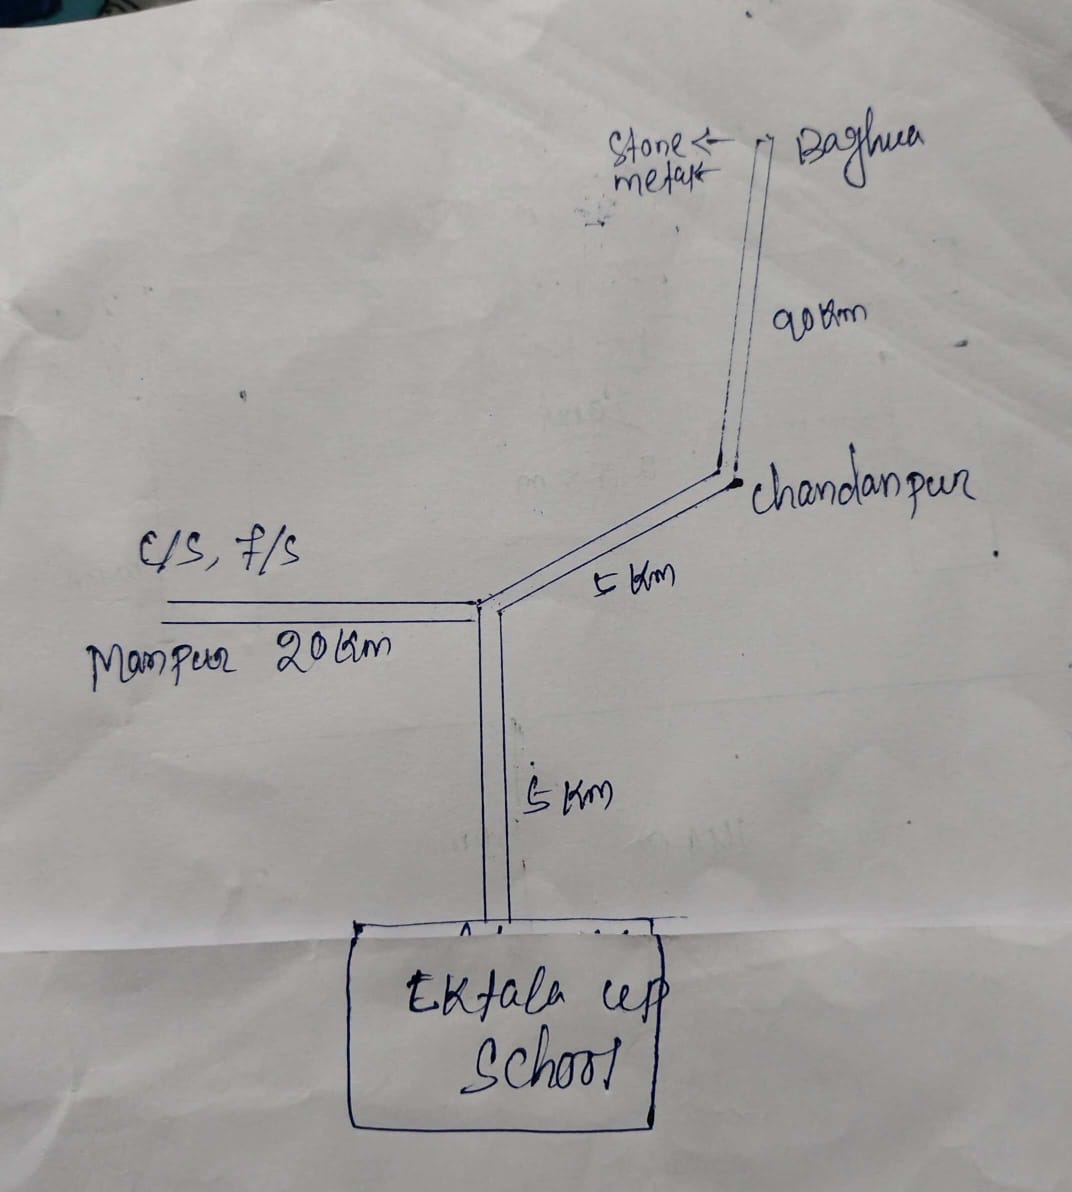 Stone ← Baghua
metal ←
90 Km
Chandanpur
C/S, F/S
5 Km
Manpur 20 Km
5 Km
Ektala UP
School